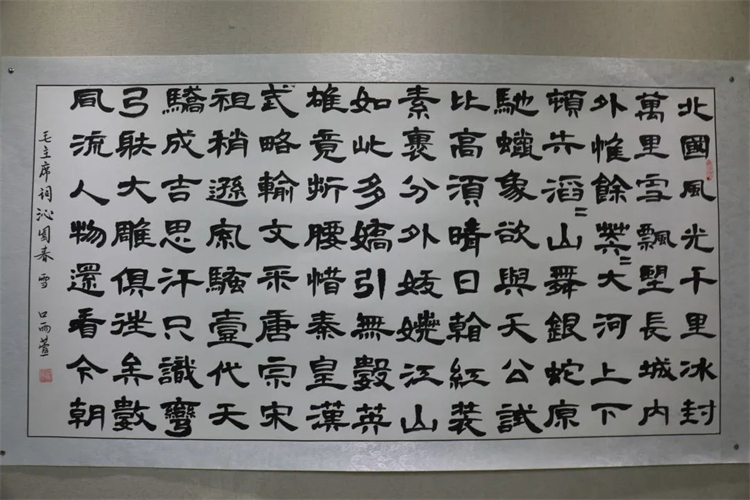 北國風光千里冰封
萬里雪飄朢長城內
外惟餘莽〻大河上下
頓失滔〻山舞銀蛇原
馳蠟象欲與天公試
比高須晴日翰紅裝
素裹分外妖嬈江山
如此多嬌引無數英
雄竟折腰惜秦皇漢
武略輸文采唐宗宋
祖稍遜風騷壹代天
驕成吉思汗只識彎
弓射大雕俱往矣數
風流人物還看今朝
毛主席詞沁園春 雪 口雨萱